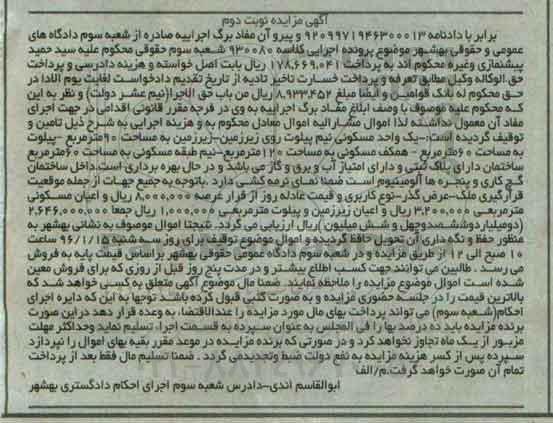 آگهی مزایده نوبت دوم
برابر با دادنامه ۹۲۰۹۹۷۱۹۴۶۳۰۰۰۱۳ و پیرو آن مفاد برگ اجراییه صادره از شعبه سوم دادگاه های
عمومی و حقوقی بهشهر موضوع پرونده اجرایی کلاسه ۹۳۰۰۸۰ شعبه سوم حقوقی محکوم علیه سید حمید
پیشنمازی وغیره محکوم اند به پرداخت ۱۷۸,۶۶۹,۰۴۱ ریال بابت اصل خواسته و هزینه دادرسی و پرداخت
حق الوکاله وکیل مطابق تعرفه و پرداخت خسارت تاخیر تادیه از تاریخ تقدیم دادخواست لغایت یوم الادا در
حق محکوم له بانک قوامین و ایضا مبلغ ۸,۹۳۳,۴۵۲ ریال من باب حق الاجرا(نیم عشر دولت) و نظر به این
که محکوم علیه موصوف با وصف ابلاغ مفاد برگ اجراییه به وی در فرجه مقرر قانونی اقدامی در جهت اجرای
مفاد آن معمول نداشته لذا اموال مشارالیه اموال معادل محکوم به و هزینه اجرایی به شرح ذیل تامین و
توقیف گردیده است:-یک واحد مسکونی نیم پیلوت روی زیرزمین-زیرزمین به مساحت ۹۰مترمربع -پیلوت
به مساحت ۶۰مترمربع - همکف مسکونی به مساحت ۱۲۰مترمربع-نیم طبقه مسکونی به مساحت ۶۰مترمربع
ساختمان دارای پلاک ثبتی و دارای امتیاز آب و برق و گاز می باشد و در حال بهره برداری است.داخل ساختمان
گچ کاری و پنجره ها آلومینیوم است ضمنا نمای نرمه کشی دارد .باتوجه به جمیع جهات از جمله موقعیت
قرارگیری ملک-عرض گذر-نوع کاربری و قیمت عادله روز از قرار عرصه ۸,۰۰۰,۰۰۰ ریال و اعیان مسکونی
مترمربعی ۳,۲۰۰,۰۰۰ ریال و اعیان زیرزمین و پیلوت مترمربعی ۱,۰۰۰,۰۰۰ ریال جمعا ۲,۶۴۶,۰۰۰,۰۰۰
(دومیلیاردوششصدوچهل و شش میلیون )ریال ارزیابی می گردد. نتیجتا اموال موصوف به نشانی بهشهر به
منظور حفظ و نگه داری آن تحویل حافظ گردیده و اموال موضوع توقیف برای روز سه شنبه ۹۶/۱/۱۵ ساعت
۱۰ صبح الی ۱۲ از طریق مزایده و در شعبه سوم دادگاه عمومی حقوقی بهشهر براساس قیمت پایه به فروش
می رسد . طالبین می توانند جهت کسب اطلاع بیشتر و در مدت پنج روز قبل از روزی که برای فروش معین
شده است اموال موضوع مزایده را ملاحظه نمایند. ضمنا مال موضوع آگهی متعلق به کسی خواهد شد که
بالاترین قیمت را در جلسه حضوری مزایده و به صورت کتبی قبول کرده باشد توجها به این که دایره اجرای
احکام(شعبه سوم) می تواند پرداخت بهای مال مورد مزایده را عندالاقتضاء به وعده قرار دهد دراین صورت
برنده مزایده باید ده درصد بها را فی المجلس به عنوان سپرده به قسمت اجراء تسلیم نماید وحداکثر مهلت
مزبور از یک ماه تجاوز نخواهد کرد و در صورتی که برنده مزایده در موعد مقرر بقیه بهای اموال را نپردازد
سپرده پس از کسر هزینه مزایده به نفع دولت ضبط وتجدیدمی گردد . ضمنا تسلیم مال فقط بعد از پرداخت
تمام آن صورت خواهد گرفت.م/الف
ابوالقاسم اندی-دادرس شعبه سوم اجرای احکام دادگستری بهشهر